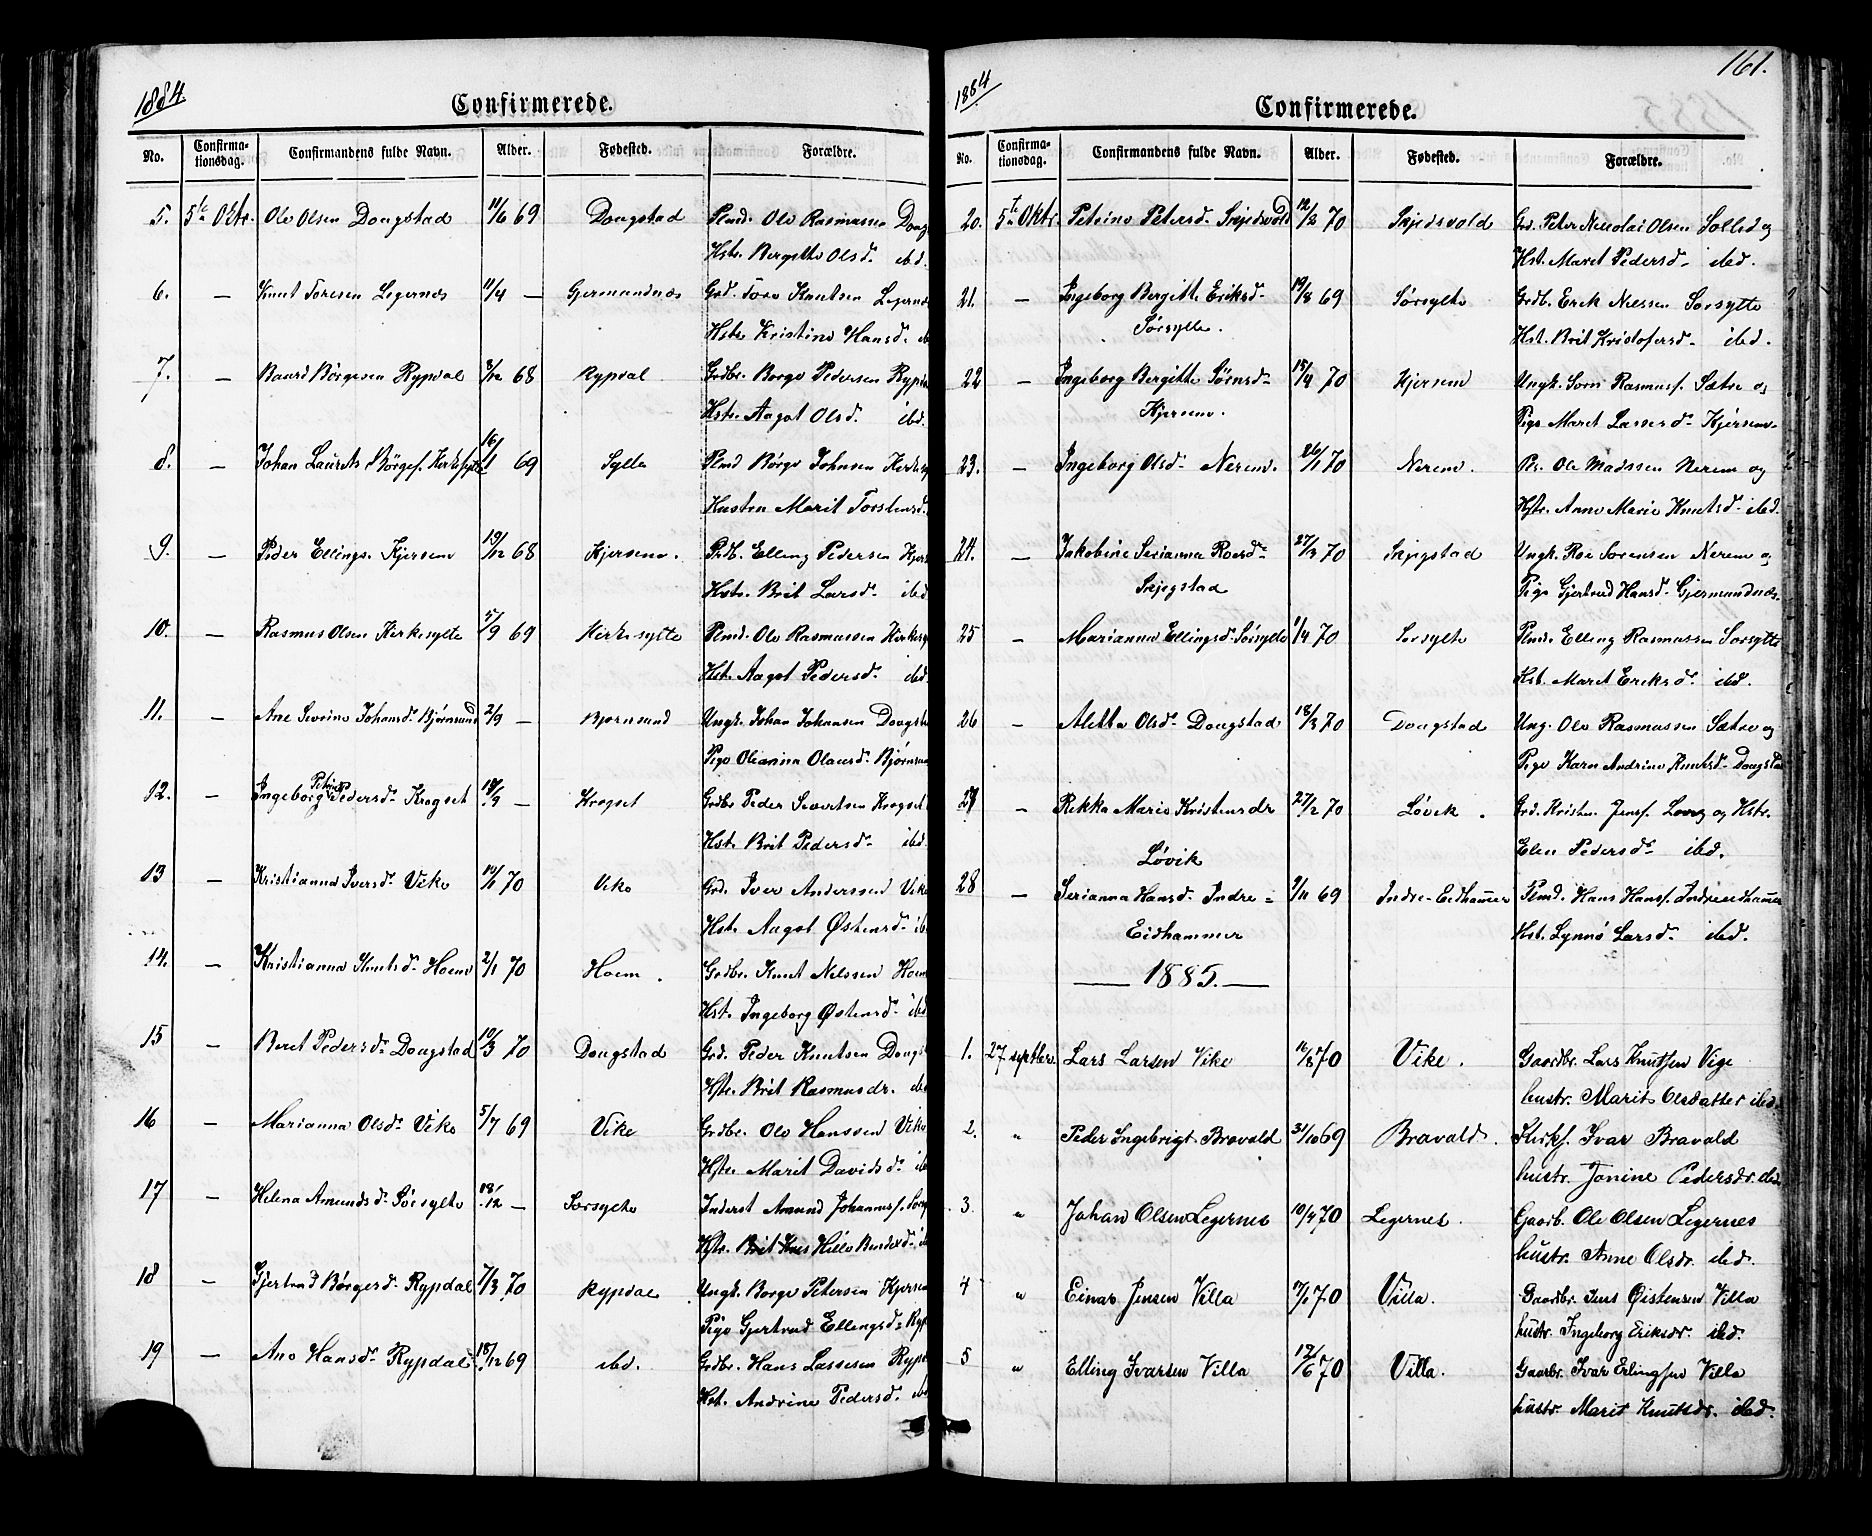 1884.
Confirmerede.
No. Confirmationsdag. Confirmandens fulde Navn. Alder. Fødested. Forældre.
5. 5te Oktr. Ole Olsen Dougstad 11/6 69 Dougstad Plmd. Ole Rasmussen Doug
Hstr. Bergitte Olsd. ibd.
6. — Knut Toresen Legernæs 11/4 — Gjermundnæs Grd. Tore Knutsen Legernæs
Hstr. Kristine Hansd. ib
7. — Baard Børgesen Rypdal 3/12 68 Rypdal Grdbr. Børge Pedersen Rypda
Hstr. Aagot Olsd. ibd.
8. — Johan Laurits Børges. Kirkesylte 16/11 69 Sylte Plmd Børge Johnsen Kirkesy
Hustru Marit Torstensd.
9. — Peder Ellings. Kjersem 19/12 68 Kjersem. Grdb. Elling Pedersen Kjers
Hstr. Brit Larsd. ibd
10. — Rasmus Olsen Kirkesylte 5/9 69 Kirkesylte Plmd. Ole Rasmussen Kirkesy
Hst. Aagot Pedersd. ibd.
11. — Ane Severine Johansd. Bjørnsund 2/9 — Bjørnsund Ungk. Johan Johansen Dougsta
Pige Oleanna Olausd. Bjørnsun
12. — Ingeborg Petrine Pedersd. Krogset 18/9 — Krogset Grdbr Peder Sivertsen Krogset
Hst. Brit Pedersd. ibd.
13 — Kristianna Iversd. Vike 14/1 70 Vike Grd. Iver Anderssen Vike
Hst. Aagot Østensd. ib
14. — Kristianna Knutsd. Hoem 2/1 70 Hoem. Grdbr. Knut Nilssen Hoem
Hst. Ingeborg Østensd. ibd
15 — Beret Pedersd. Dougstad 10/3 70 Dougstad Grd. Peder Knutsen Dougs
Hstr. Brit Rasmusdr. ibd
16 — Marianna Olsd. Vike 5/7 69 Vike Grdbr. Ole Hanssen Vike
Hstr. Marit Davidsd. ib
17 — Helena Amundsd. Sørsylte 18/12 — Sørsylte Inderst Amund Johannss. Sørsy
Hstr. Brit Hille Bendixd. ib
18 — Gjertrud Børgesd. Rypdal 7/3 70 Rypdal Ungk. Børge Petersen Kjersem
Pige Gjertrud Ellingsd. Ryp
19 — Ane Hansd. Rypdal 18/12 69 ibd. Grdbr. Hans Lassesen Rypd
Hst. Andrine Pedersd. ibd
1884
161.
Confirmerede.
No. Confirmationsdag. Confirmandens fulde Navn. Alder. Fødested. Forældre.
20. 5te Oktr. Petrine Petersd. Skjedsvold 12/2 70 Skjedsvold Grd. Peter Nicolai Olsen Solli og
Hst. Maret Pedersd. ibd.
21. — Ingeborg Bergitte Eriksd. 19/8 69 Sørsylte Grdb. Erik Nilssen Sørsylte
Sørsylte. Hst. Brit Kristofersd. ibd.
22 — Ingeborg Bergitte Sørnsd. 15/4 70 Kjersem Ungk. Sørn Rasmuss. Sætre og
Kjersem. Pige Maret Lassesd. Kjersem
23. — Ingeborg Olsd. Nerem. 26/1 70 Nerem. Ole Madssen Nerem og
Hstr. Anne Marie Knutsd. ibd.
24. — Jakobine Serianna Roesd. 27/3 70 Skjegstad Ungk. Roe Sørensen Nerem og
Skjegstad Pige Gjertrud Hansd. Gjermundnæs.
25 — Marianna Ellingsd. Sørsylte 1/4 70 Sørsylte Plmd. Elling Rasmussen Sørsylte
Hst. Maret Eriksd. ibd.
26 — Aletta Olsd. Dougstad 18/3 70 Dougstad Ung. Ole Rasmussen Sætre og
Pige Karn Andrine Knutsd. Dougstad
27 — Rikka Marie Kristensdr 27/2 70 Løvik. Grd. Kristen Jenss. Løvig og Hstr.
Løvik Elen Pedersd. ibd.
28 — Serianna Hansd. Indre= 9/11 69 Indre-Eidhamer Plmd. Hans Hanss. Indreeidhamer
Eidhammer Hst. Lynnø Larsd. ibd.
— 1885. —
1. 27 septbr. Lars Larsen Vike 16/8 70 Vike. Gaardbr. Lars Knutsen Vige
hustr. Marit Olsdatter ibd.
2. " Peder Ingebrigt Bravald 31/10 69 Bravald. Kirks. Ivar Bravald
hustr. Janine Pedersdr. ibd.
3. " Johan Olsen Legernes 10/4 70 Legernes. Gaarb. Ole Olsen Legernes
hustr. Anne Olsdr. ibd.
4 " Einar Jensen Villa 17/1 70 Villa. Gaardbr. Jens Øistensen Villa
hustr. Ingeborg Eriksdr. ibd.
5 " Elling Ivarsen Villa 19/6 70 Villa. Gaarbr. Ivar Erlingsen Villa
hustr. Marit Knutsdr. ibd.